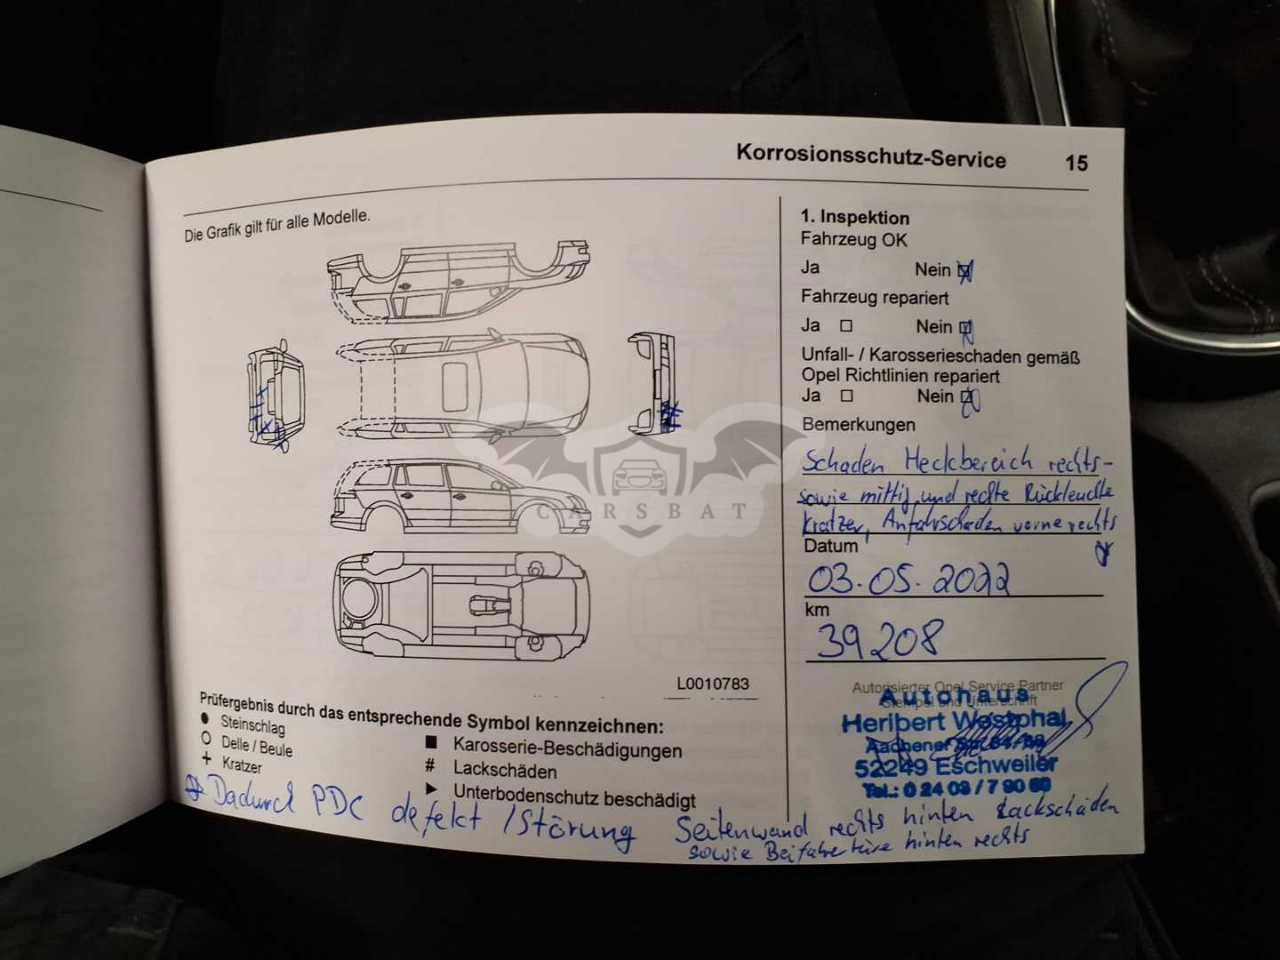 Korrosionsschutz-Service 15
Die Grafik gilt für alle Modelle.
L0010783
Prüfergebnis durch das entsprechende Symbol kennzeichnen:
● Steinschlag
○ Delle / Beule
+ Kratzer
■ Karosserie-Beschädigungen
# Lackschäden
▶ Unterbodenschutz beschädigt
1. Inspektion
Fahrzeug OK
Ja Nein
Fahrzeug repariert
Ja Nein
Unfall- / Karosserieschaden gemäß
Opel Richtlinien repariert
Ja Nein
Bemerkungen
Schaden Heckbereich rechts-
sowie mittig und rechte Rückleuchte
Kratzer, Anfahrschaden vorne rechts
Datum
03.05.2022
km
39208
Autorisierter Opel Service Partner
Stempel und Unterschrift
Autohaus
Heribert Westphal
Aachener Str.
52249 Eschweiler
Tel.: 0 24 03 / 7 90
Dadurch PDC defekt / Störung
Seitenwand rechts hinten Lackschäden
sowie Beifahrertüre hinten rechts
CARSBAT